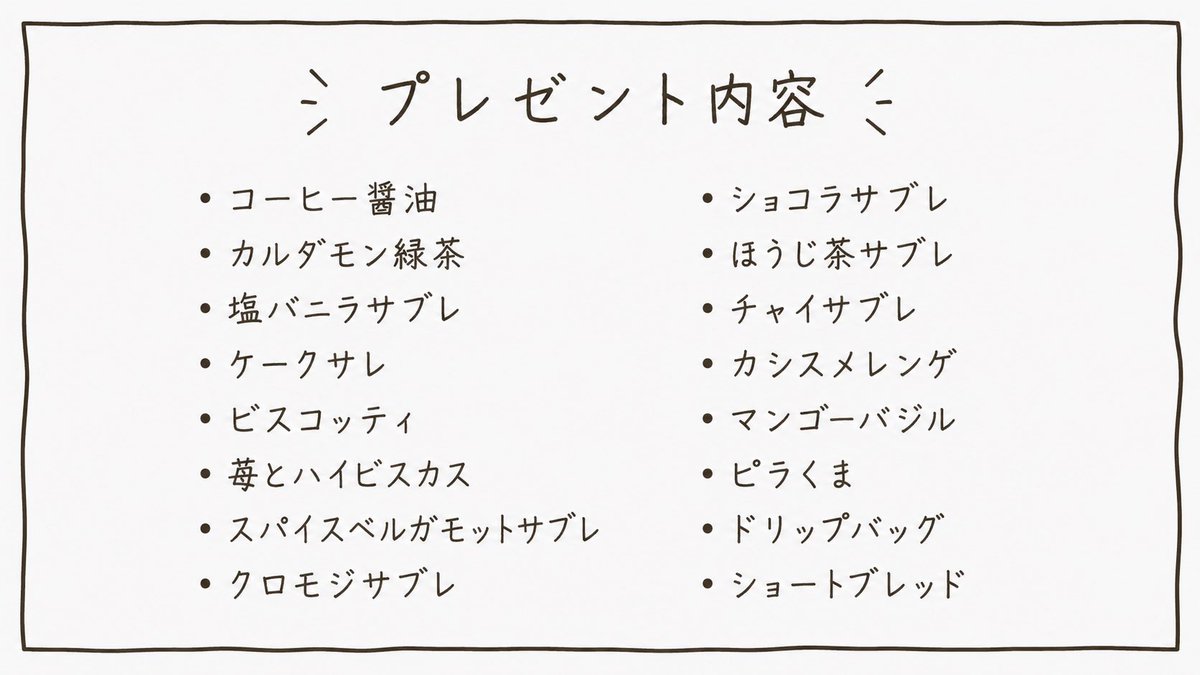 プレゼント内容
・コーヒー醤油
・カルダモン緑茶
・塩バニラサブレ
・ケークサレ
・ビスコッティ
・苺とハイビスカス
・スパイスベルガモットサブレ
・クロモジサブレ
・ショコラサブレ
・ほうじ茶サブレ
・チャイサブレ
・カシスメレンゲ
・マンゴーバジル
・ピラくま
・ドリップバッグ
・ショートブレッド